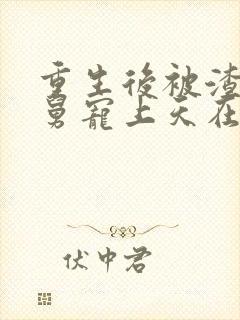 重生後被渣
舅寵上天在
伏中君